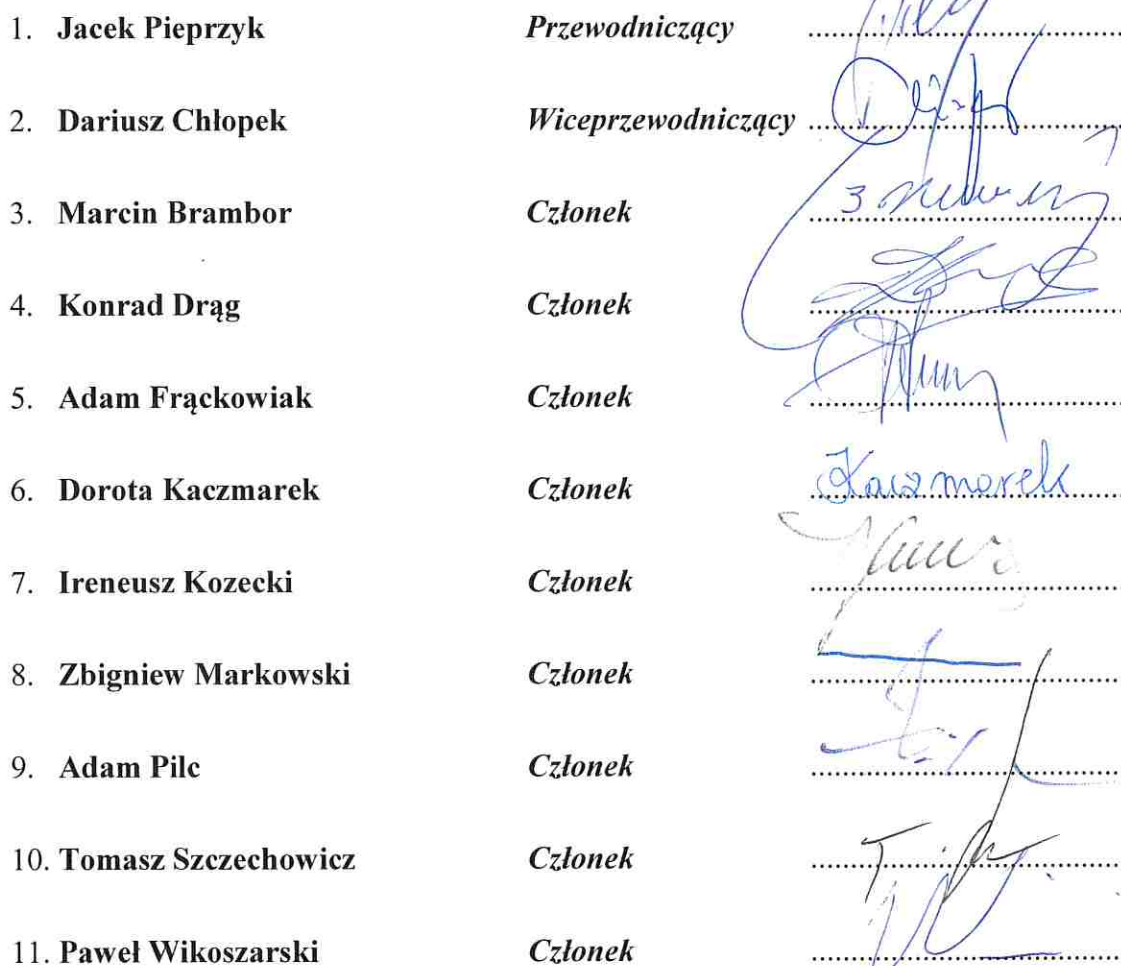 1. Jacek Pieprzyk Przewodniczący
2. Dariusz Chłopek Wiceprzewodniczący
3. Marcin Brambor Członek
4. Konrad Drąg Członek
5. Adam Frąckowiak Członek
6. Dorota Kaczmarek Członek Kaczmarek
7. Ireneusz Kozecki Członek
8. Zbigniew Markowski Członek
9. Adam Pilc Członek
10. Tomasz Szczechowicz Członek
11. Paweł Wikoszarski Członek